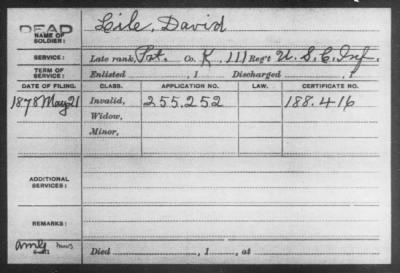 DEAD
NAME OF SOLDIER: Lile, David
SERVICE: Late rank, Pvt. Co. K, 111 Reg't U. S. C. Inf.
TERM OF SERVICE: Enlisted , 1 Discharged , 1
DATE OF FILING. CLASS. APPLICATION NO. LAW. CERTIFICATE NO.
1878 May 21 Invalid, 255,252 188.416
Widow,
Minor,
ADDITIONAL SERVICES:
REMARKS:
Died , 1 , at